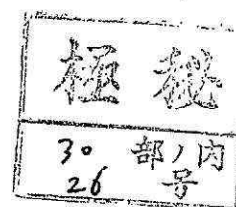 極秘
30 部ノ内
26 号